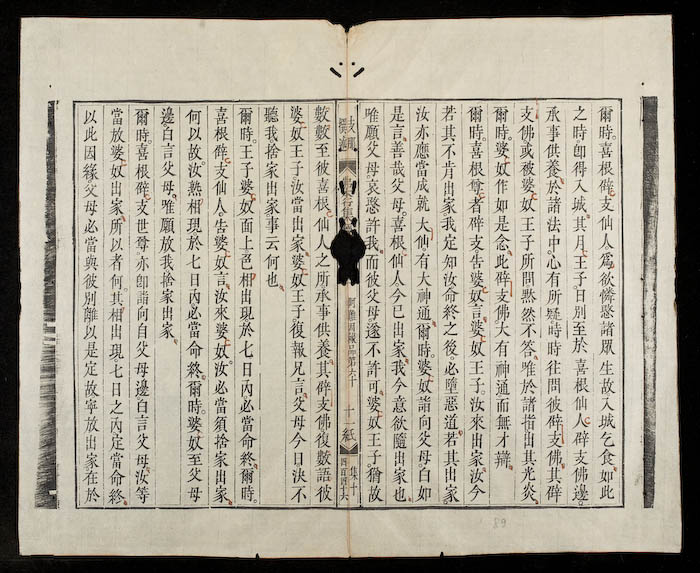 爾時喜根辟支仙人為欲憐愍諸眾生故入城乞食如此
之時即得入城其月王子日別至於喜根仙人辟支佛邊
承事供養於諸法中心有所疑時時往問彼辟支佛其辟
支佛或被婆奴王子所問默然不答唯於諸指出其光炎
爾時婆奴作如是念此辟支佛大有神通而無才辯
爾時喜根尊者辟支告婆奴言婆奴王子汝來出家汝今
若其不肯出家我定知汝命終之後必墮惡道若其出家
汝亦應當成就大仙有大神通爾時婆奴諮向父母白如
是言善哉父母喜根仙人今已出家我今意欲隨出家也
唯願父母哀愍許我而彼父母遂不許可婆奴王子猶故
阿難因緣品第六十
十一紙
集十
四百四十六
數數至彼喜根仙人之所承事供養其辟支佛復數語彼
婆奴王子汝當出家婆奴王子復報兄言父母今日決不
聽我捨家出家事云何也
爾時王子婆奴面上色相出現於七日內必當命終爾時
喜根辟支仙人告婆奴言汝來婆奴汝必當須捨家出家
何以故汝熟相現於七日內必當命終爾時婆奴至父母
邊白言父母唯願放我捨家出家
爾時喜根辟支世尊亦即詣向自父母邊白言父母汝等
當放婆奴出家所以者何其相出現七日之內定當命終
以此因緣父母必當與彼別離以是定故寧放出家在於
89